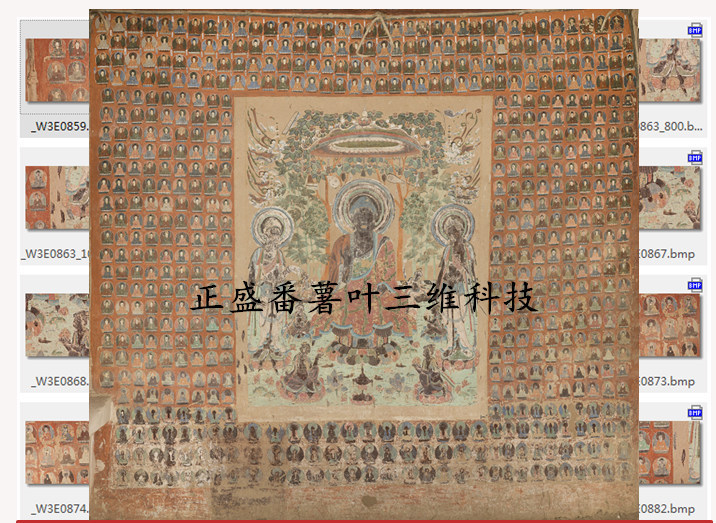 BMP
_W3E0859.
863_800.b...
BMP
_W3E0863_10
867.bmp
正盛番薯叶三维科技
BMP
_W3E0868.
873.bmp
BMP
_W3E0874.
882.bmp